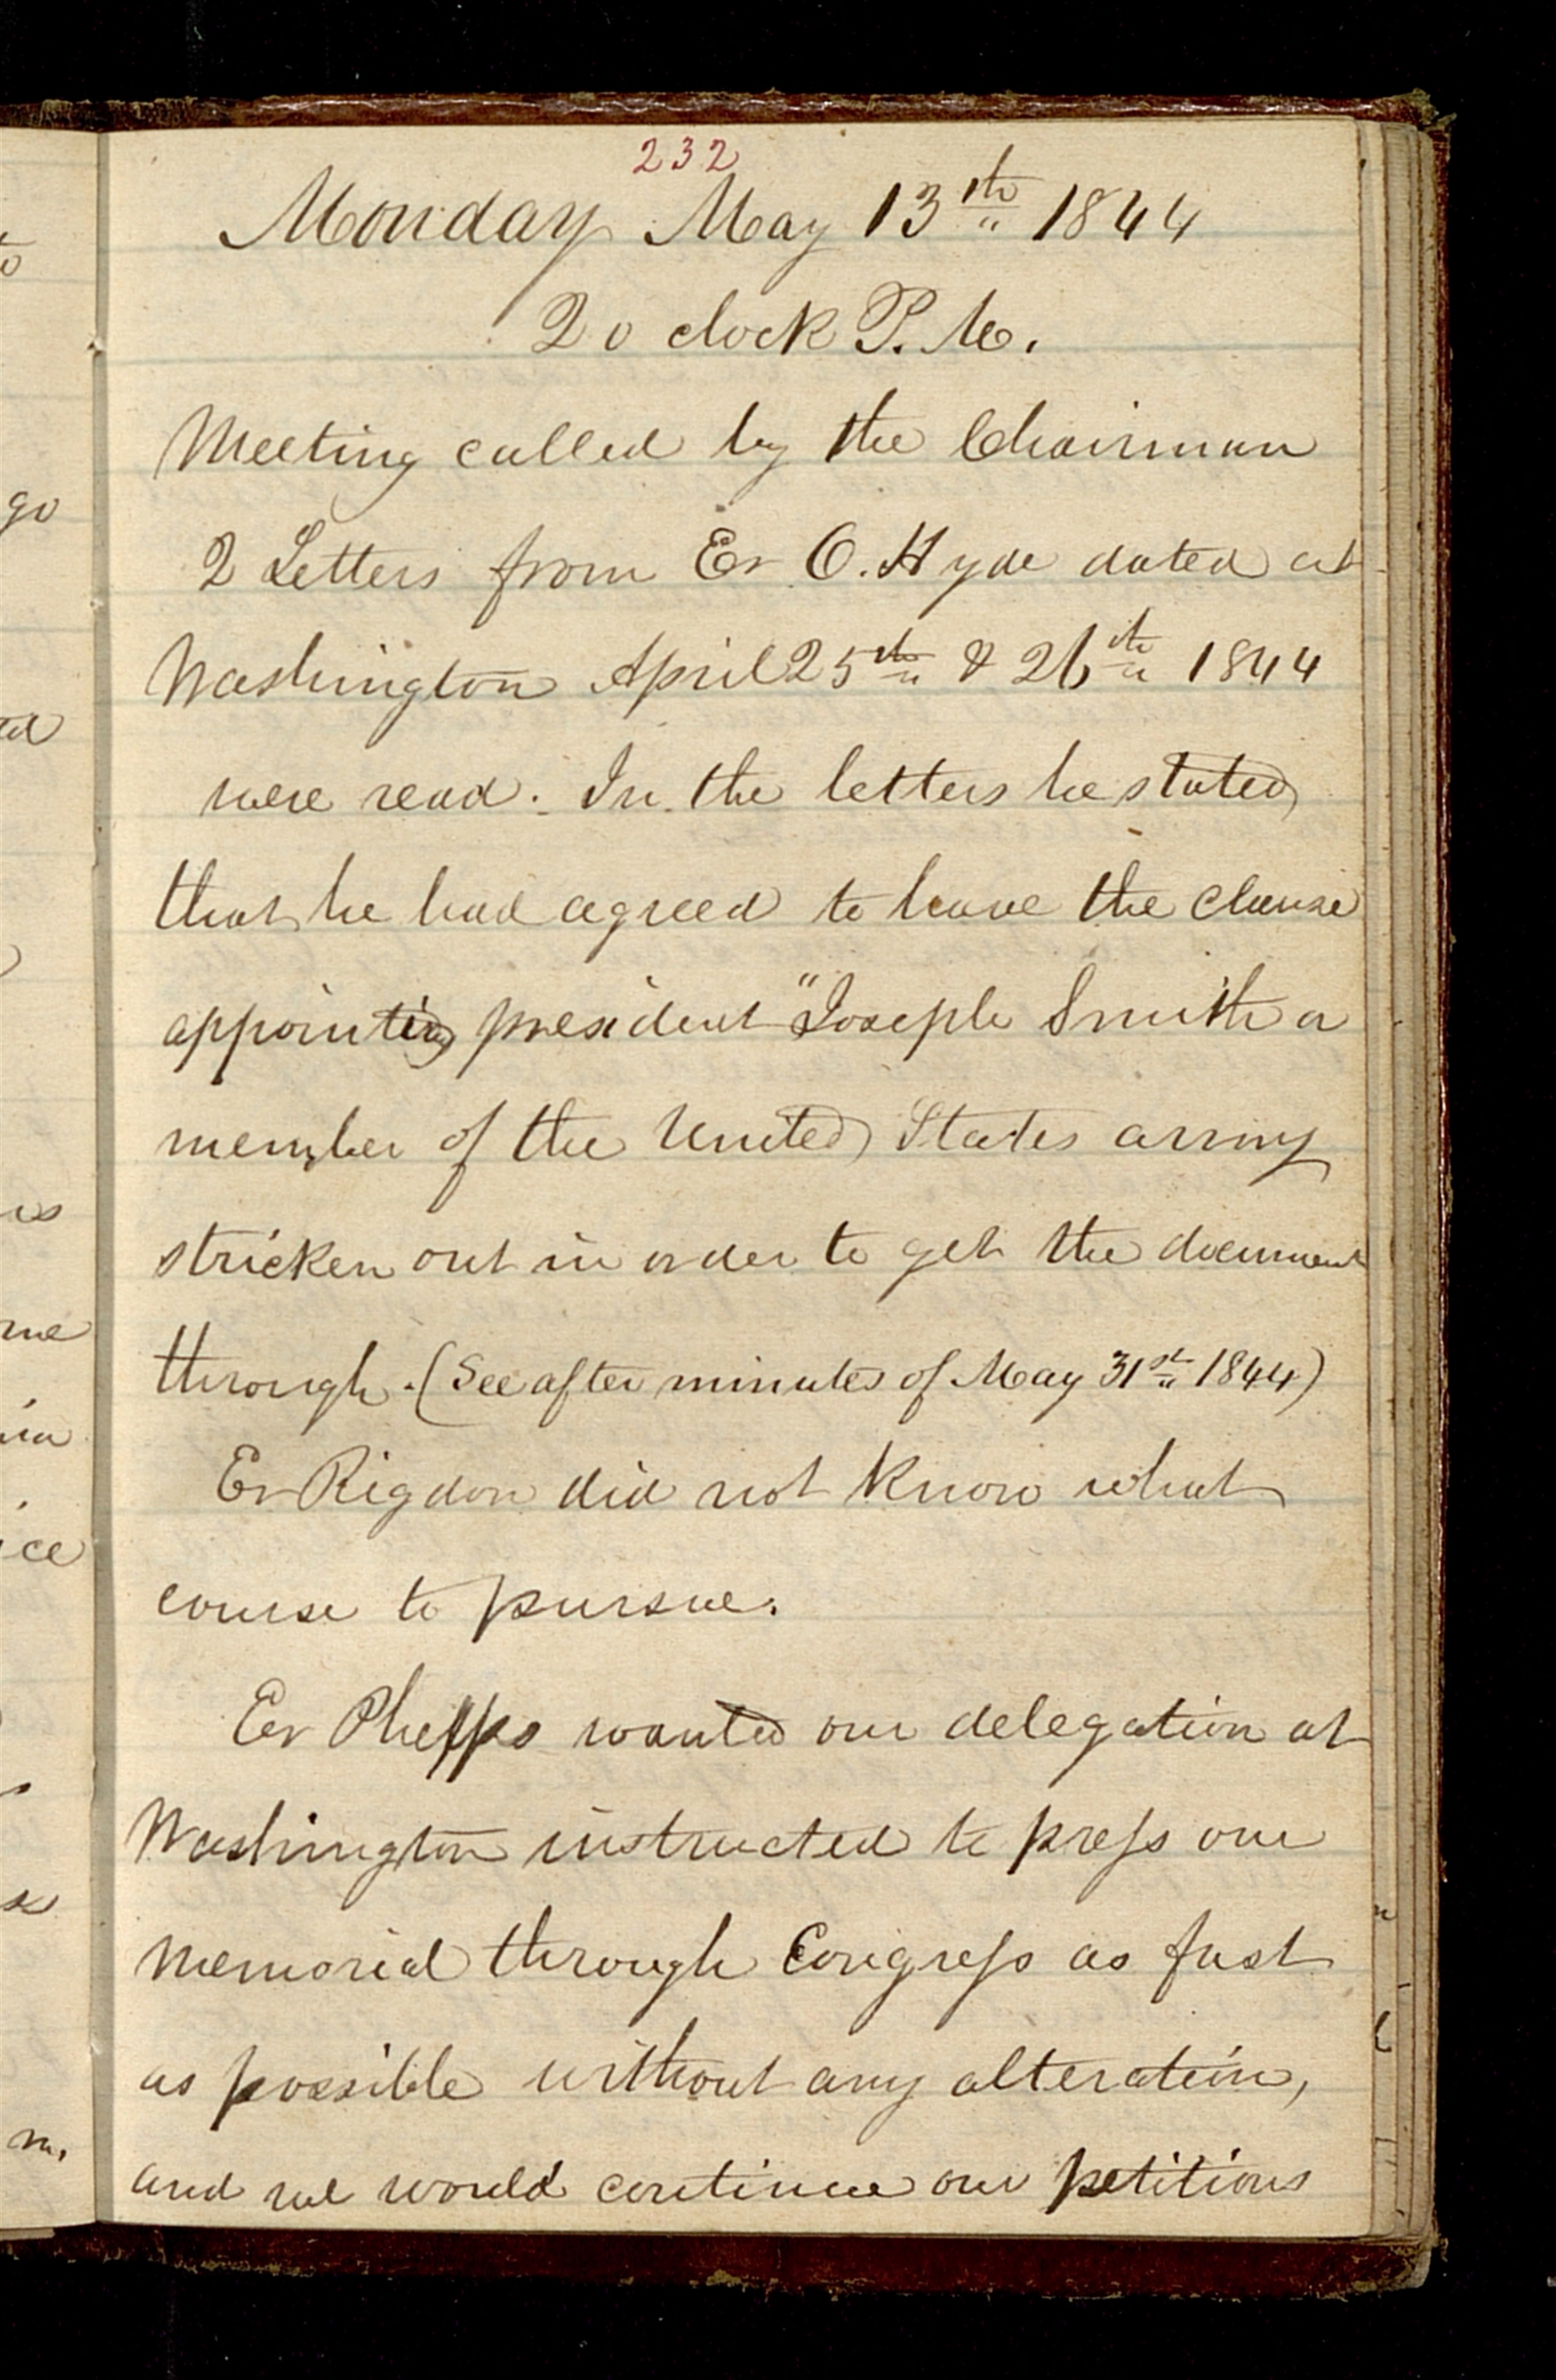 232
Monday May 13th 1844
2 o clock P. M.
Meeting called by the Chairman
2 Letters from Er O. Hyde dated at
Washington April 25th & 26th 1844
were read. In the letters he stated
that he had agreed to have the clause
appointing president "Joseph Smith a
member of the United States army
stricken out in order to get the document
through. (See after minutes of May 31st 1844)
Er Rigdon did not know what
course to pursue.
Er Phelps wanted our delegation at
Washington instructed to press our
memorial through Congress as fast
as possible without any alteration,
and we would continue our petitions
go
me
ice
m.